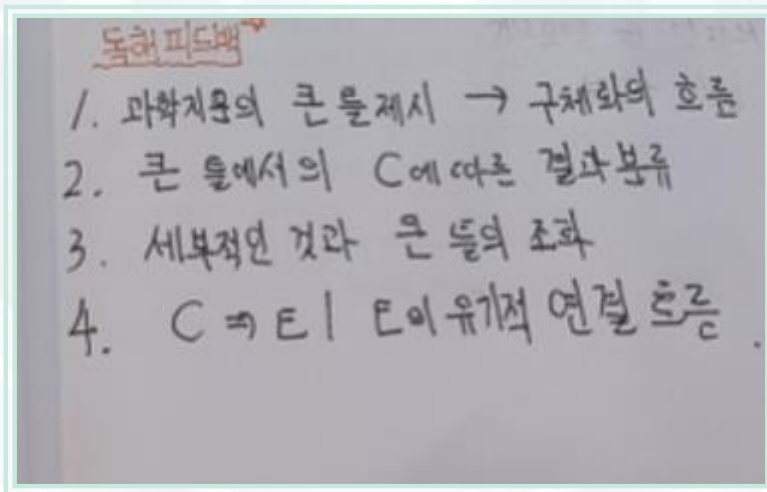 독해 피드백
1. 과학지문의 큰 틀제시 → 구체화의 흐름
2. 큰 틀에서의 C에 따른 결과 분류
3. 세부적인 것과 큰 틀의 조화
4. C ⇒ E | E의 유기적 연결 흐름